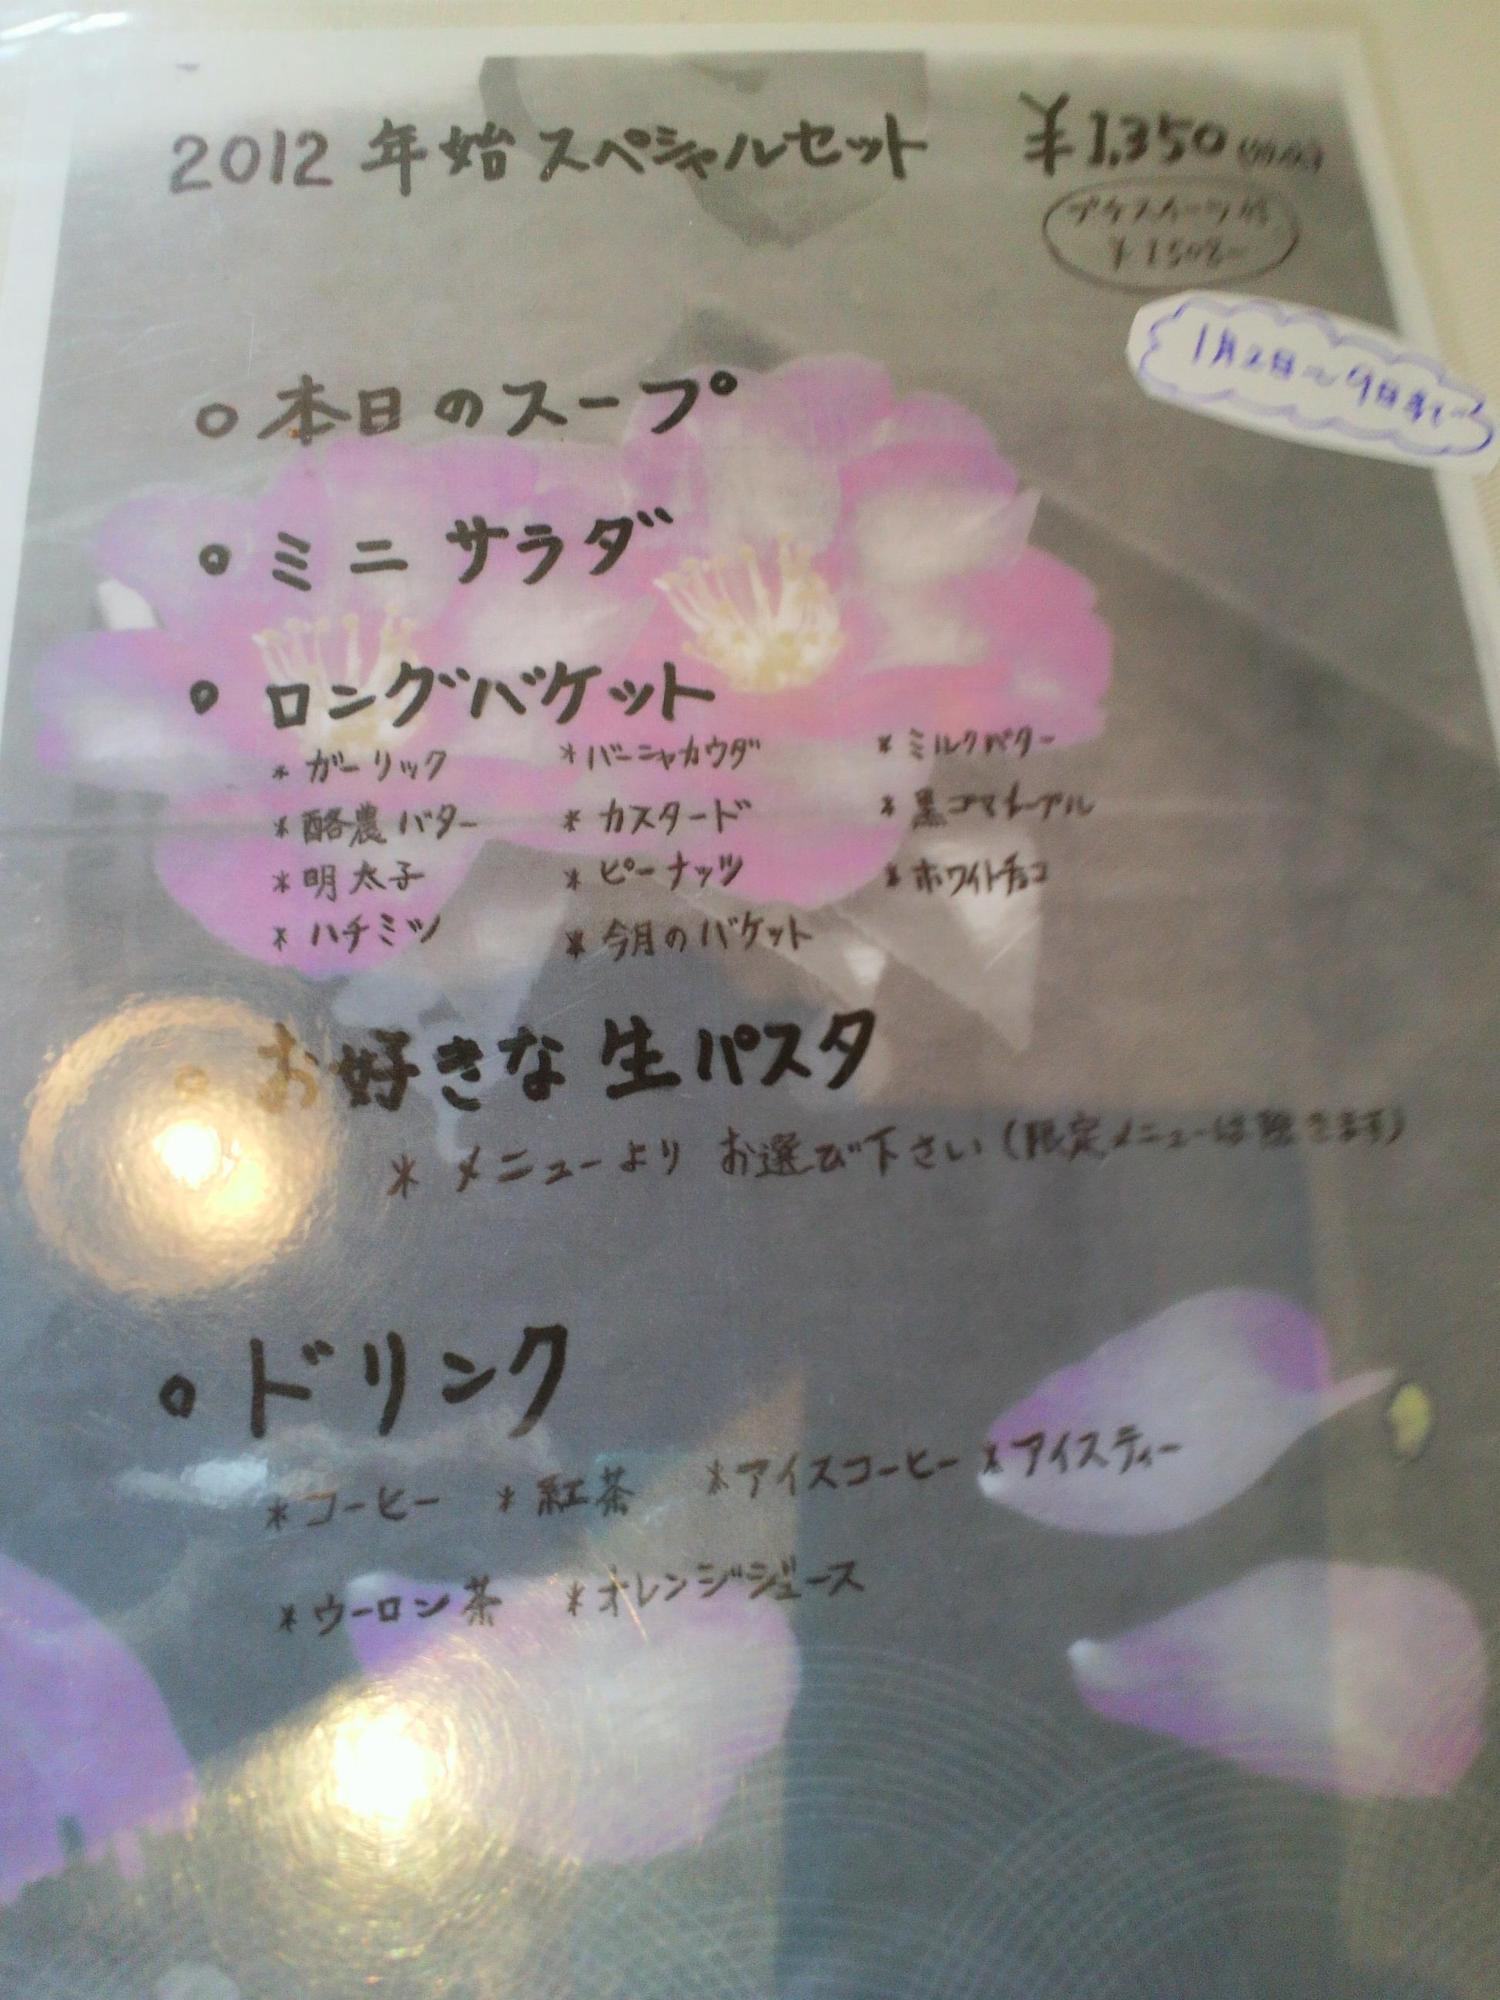 2012 年始スペシャルセット ¥1,350
プチスイーツ付
1月2日～9日まで
○ 本日のスープ
○ ミニサラダ
○ ロングバケット
* ガーリック * バーニャカウダ * ミルクバター
* 酪農バター * カスタード * 黒ゴマメープル
* 明太子 * ピーナッツ * ホワイトチョコ
* ハチミツ * 今月のバケット
○ お好きな生パスタ
* メニューより お選び下さい(限定メニューは除きます)
○ ドリンク
* コーヒー * 紅茶 * アイスコーヒー * アイスティー
* ウーロン茶 * オレンジジュース